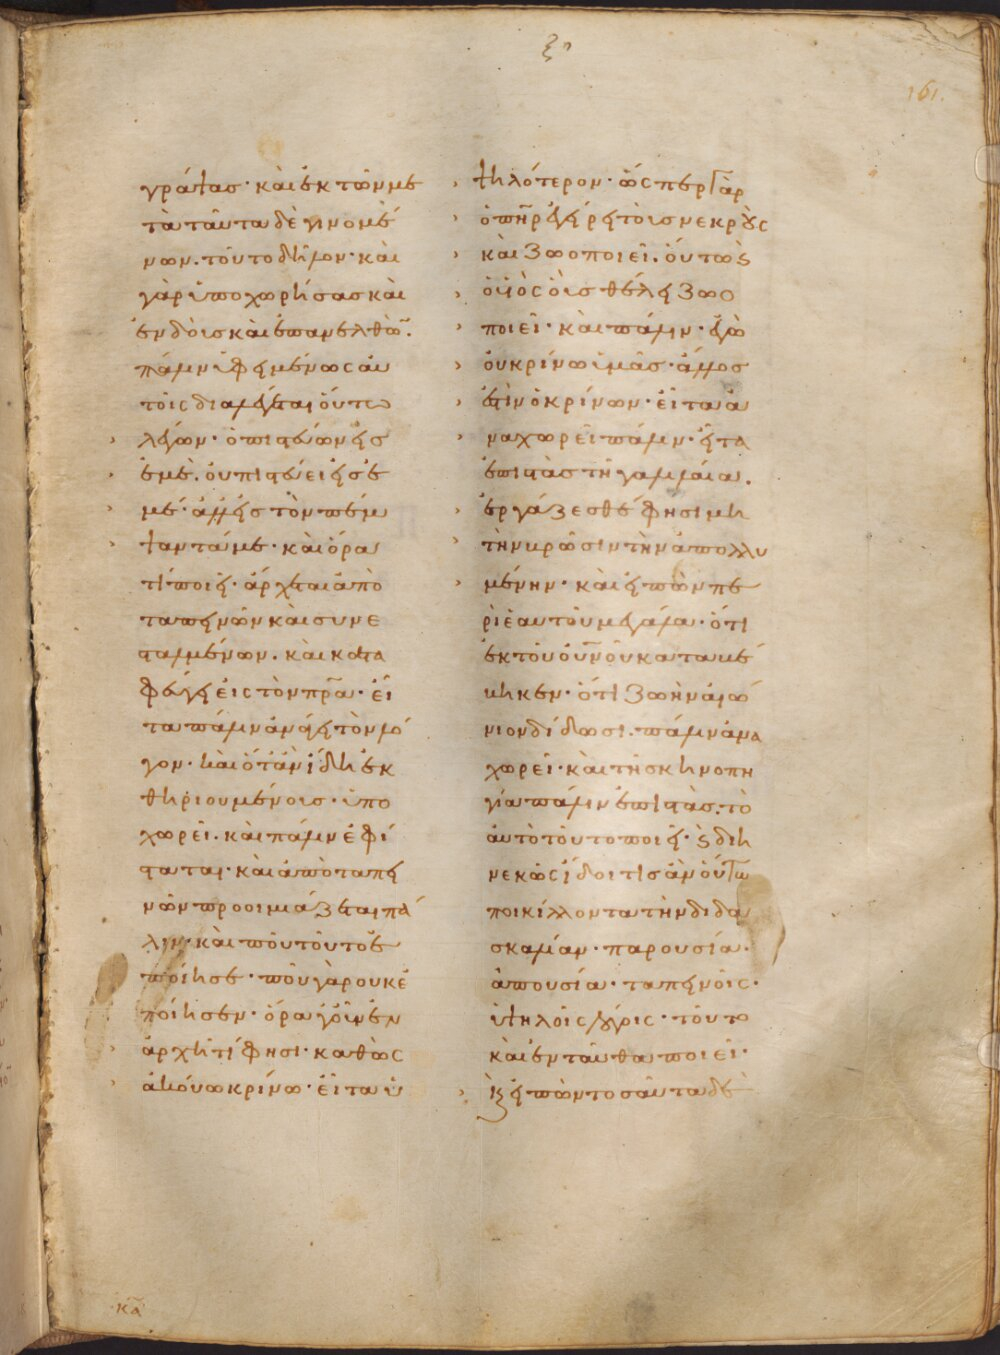 ξη
161.
γράψας· καὶ ἐκ τῶν με
τὰ ταῦτα δὲ γινομέ
νων. τοῦτο δῆλον· καὶ
γὰρ ὑποχωρήσας καὶ
ἐνδοὺς καὶ ἐπανελθὼ̅.
πάλιν ὑφειμένως αὐ
τοῖς διαλέγεται οὕτω
λέγων· ὁ πιστεύων εἰς
ἐμὲ. οὐ πιστεύει εἰς ἐ
μέ· ἀλλ' εἰς τὸν πέμ
ψαντά με· καὶ ὅρα
τί ποιεῖ· ἄρχεται ἀπὸ
ταπεινῶν καὶ συνε
σταλμένων. καὶ κατα
φεύγει εἰς τὸν πρ̅α· εἶ
τα πάλιν ἀνάγει τὸν λό
γον· καὶ ὅταν ἴδῃ ἐκ
θηριουμένους· ὑπο
χωρεῖ. καὶ πάλιν ἐφί
σταται· καὶ ἀπὸ ταπει
νῶν προοιμιάζεται πά
λιν· καὶ ποῦ τοῦτο ἐ
ποίησε· ποῦ γὰρ οὐκ ἐ
ποίησεν· ὅρα γοῦν ἐν
ἀρχῇ τί φησι· καθὼς
ἀκούω κρίνω· εἶτα ὑ
ψηλότερον· ὥσπερ γὰρ
ὁ πη̅ρ ἐγείρει τοὺς νεκροὺς
καὶ ζωοποιεῖ. οὕτως
ὁ υἱὸς οὓς θέλει ζωο
ποιεῖ· καὶ πάλιν· ἐγὼ
οὐ κρίνω ὑμᾶς· ἄλλος
ἐστὶν ὁ κρίνων· εἶτα ἀ
ναχωρεῖ πάλιν· εἶτα
ἐπιστὰς τῇ γαλιλαία.
ἐργάζεσθέ φησι μὴ
τὴν βρῶσιν τὴν ἀπολλυ
μένην· καὶ εἰπὼν πε
ρὶ ἑαυτοῦ μεγάλα· ὅτι
ἐκ τοῦ οὐ̅νοῦ καταβέ
βηκεν· ὅτι ζωὴν αἰώ
νιον δίδωσι. πάλιν ἀνα
χωρεῖ· καὶ τῇ σκηνοπη
γία πάλιν ἐπιστὰς. τὸ
αὐτὸ τοῦτο ποιεῖ· καὶ διη
νεκῶς ἴδοι τίς ἂν οὕτω
ποικίλλοντα τὴν διδα
σκαλίαν· παρουσία·
ἀπουσία· ταπεινοῖς·
ὑψηλοῖς λόγοις· τοῦτο
καὶ ἐνταῦθα ποιεῖ·
καὶ εἰπὼν τοσαῦτα δὲ
κα̅